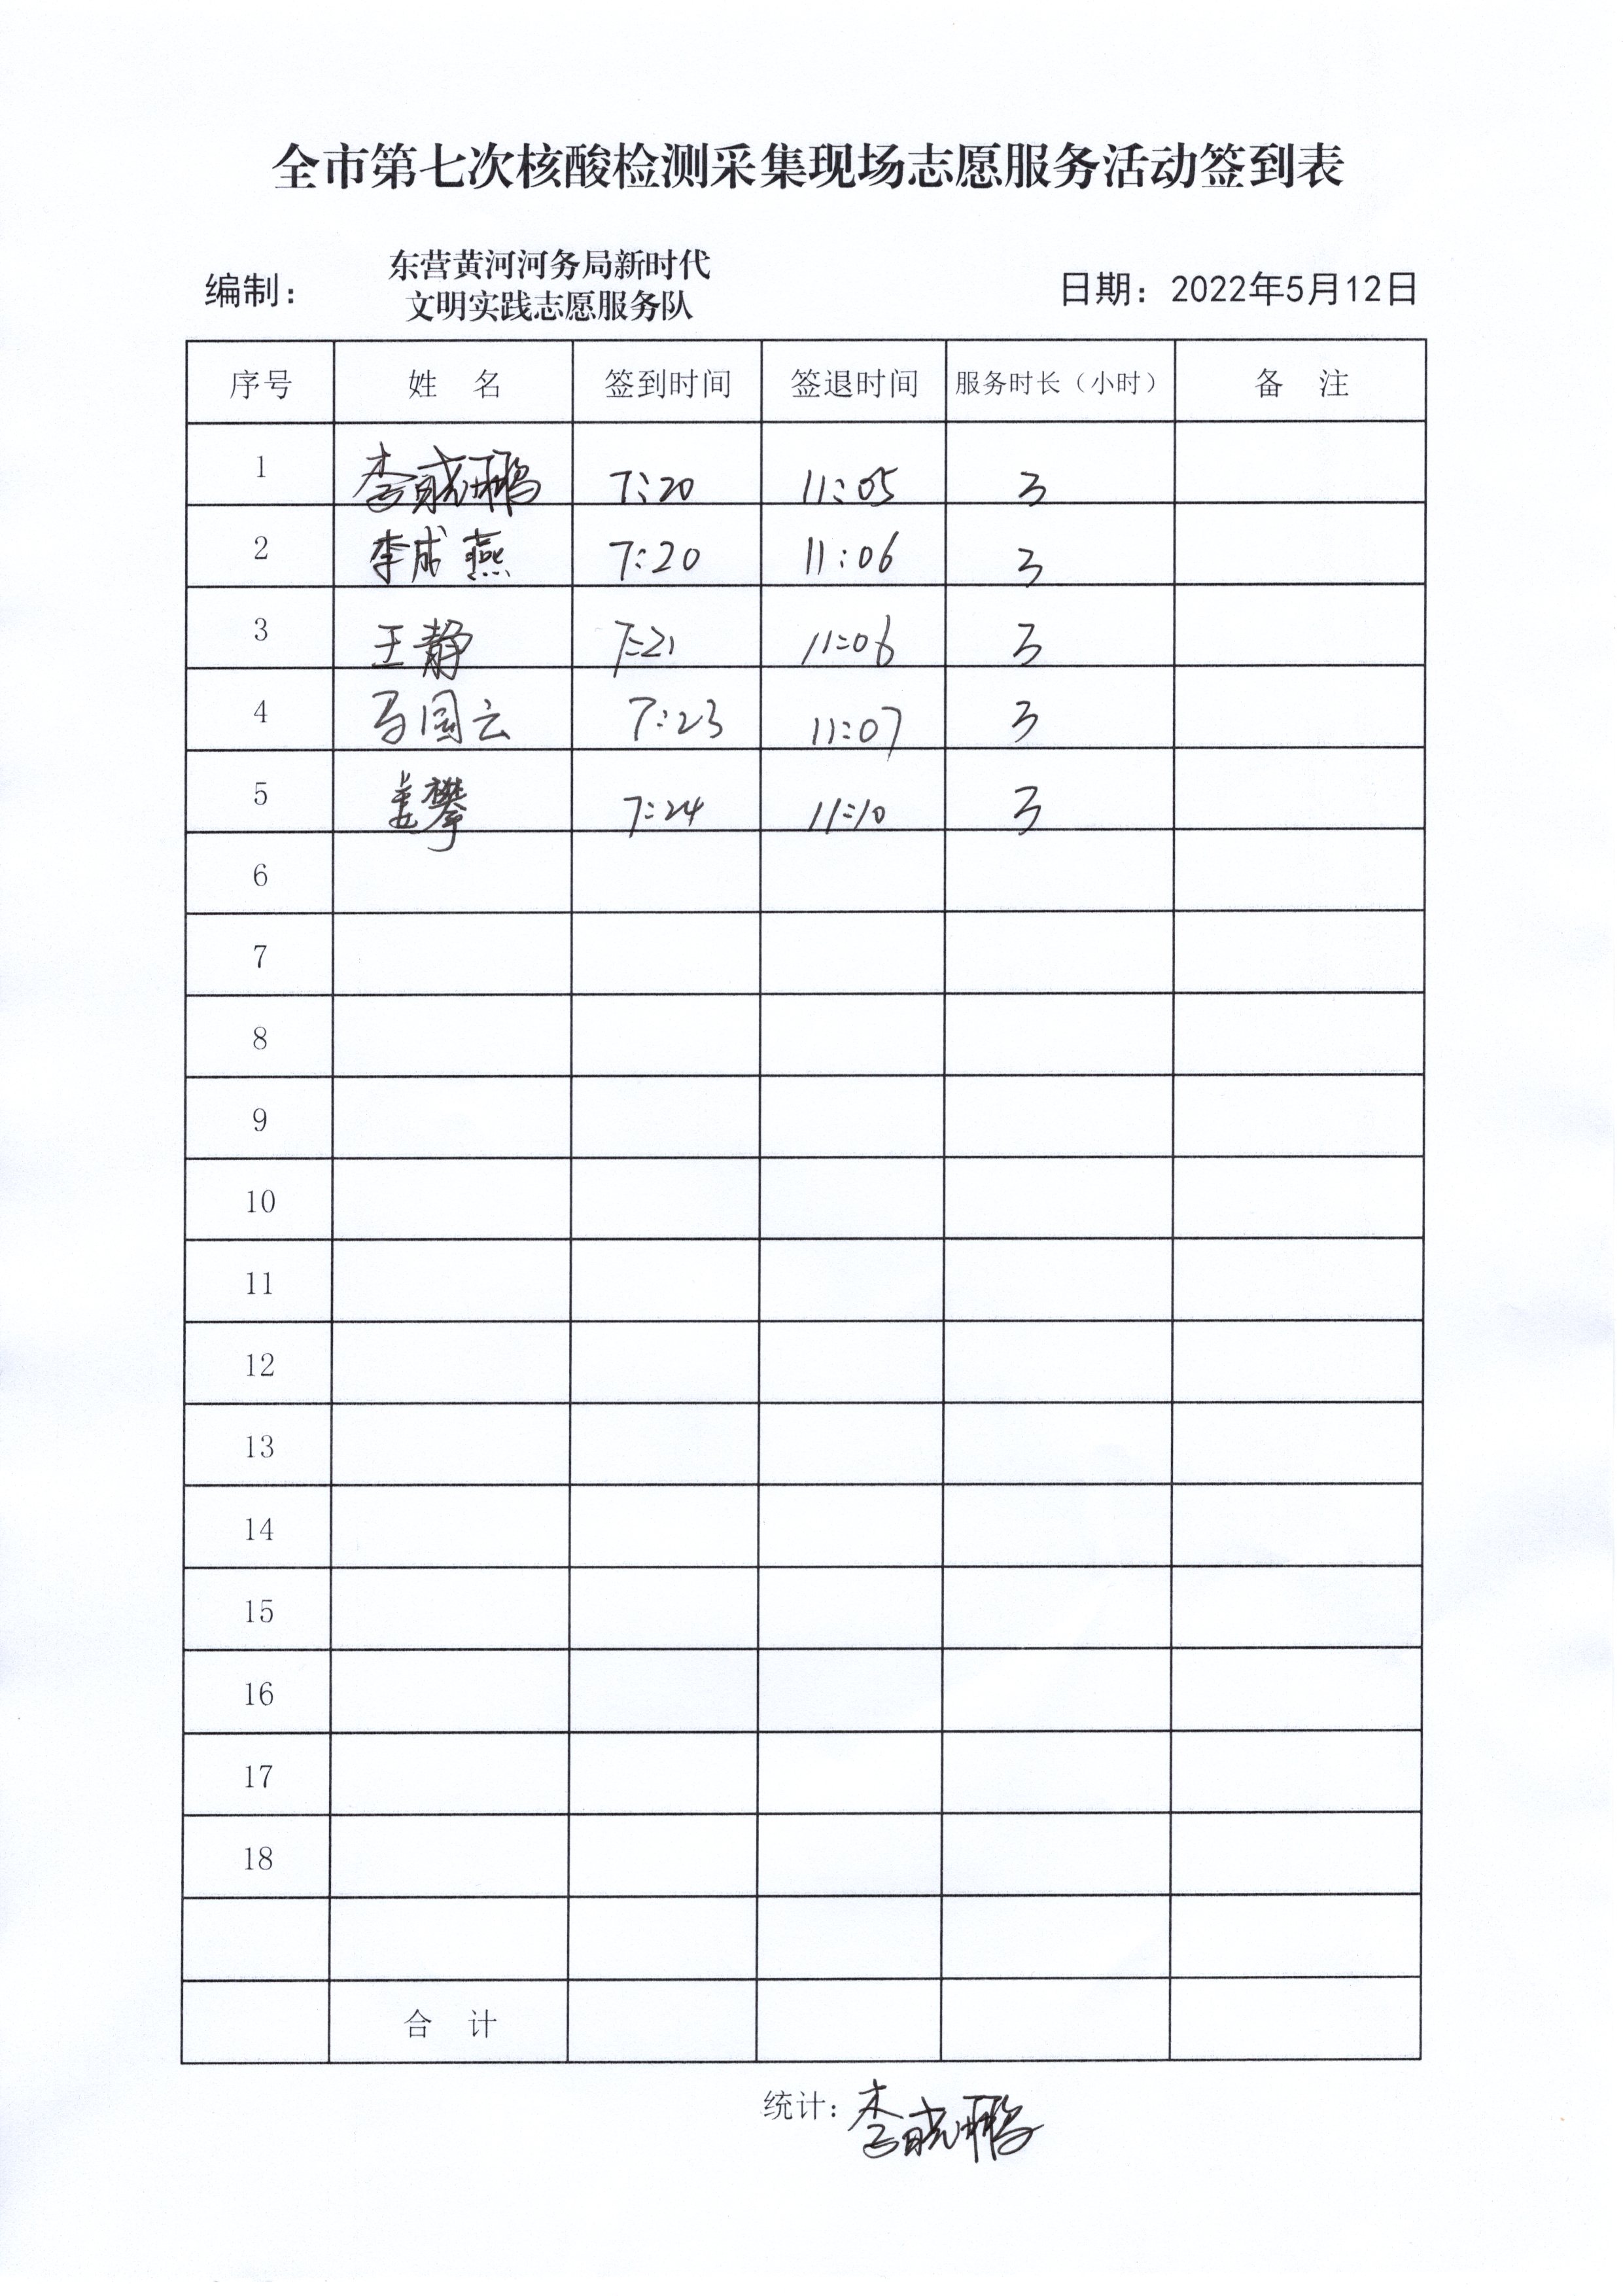 全市第七次核酸检测采集现场志愿服务活动签到表
编制: 东营黄河河务局新时代 日期: 2022年5月12日
文明实践志愿服务队
序号 姓 名 签到时间 签退时间 服务时长（小时） 备 注
1 李晓鹏 7:20 11:05 3
2 李成燕 7:20 11:06 3
3 王静 7:21 11:06 3
4 马国云 7:23 11:07 3
5 孟攀 7:24 11:10 3
6
7
8
9
10
11
12
13
14
15
16
17
18
合 计
统计: 李晓鹏